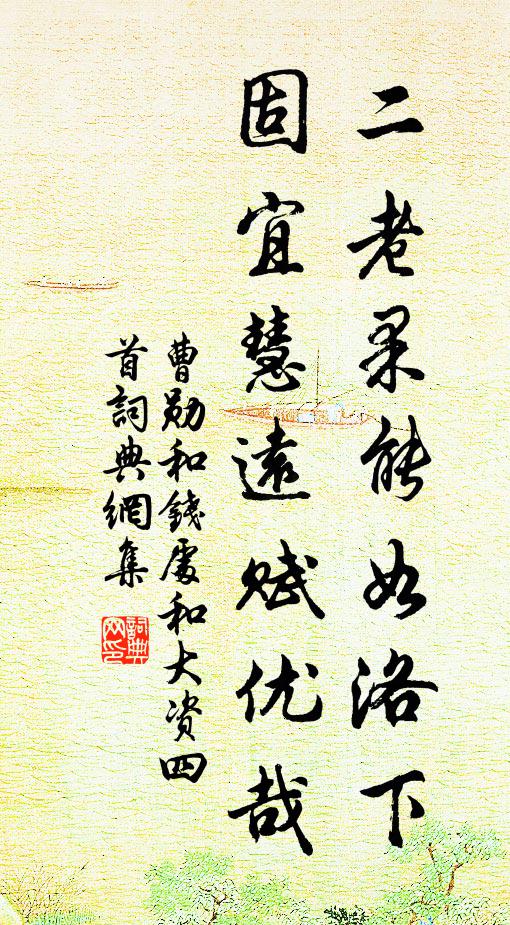 二老果能如洛下
固宜慧遠賦优哉
曹勋和錢處和大资四
首詞典網集
詞典网印